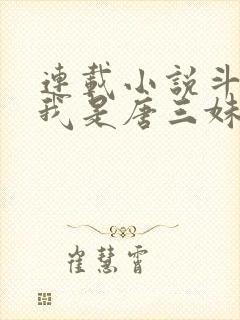 連載小說斗
我是唐三妹
崔慧霄